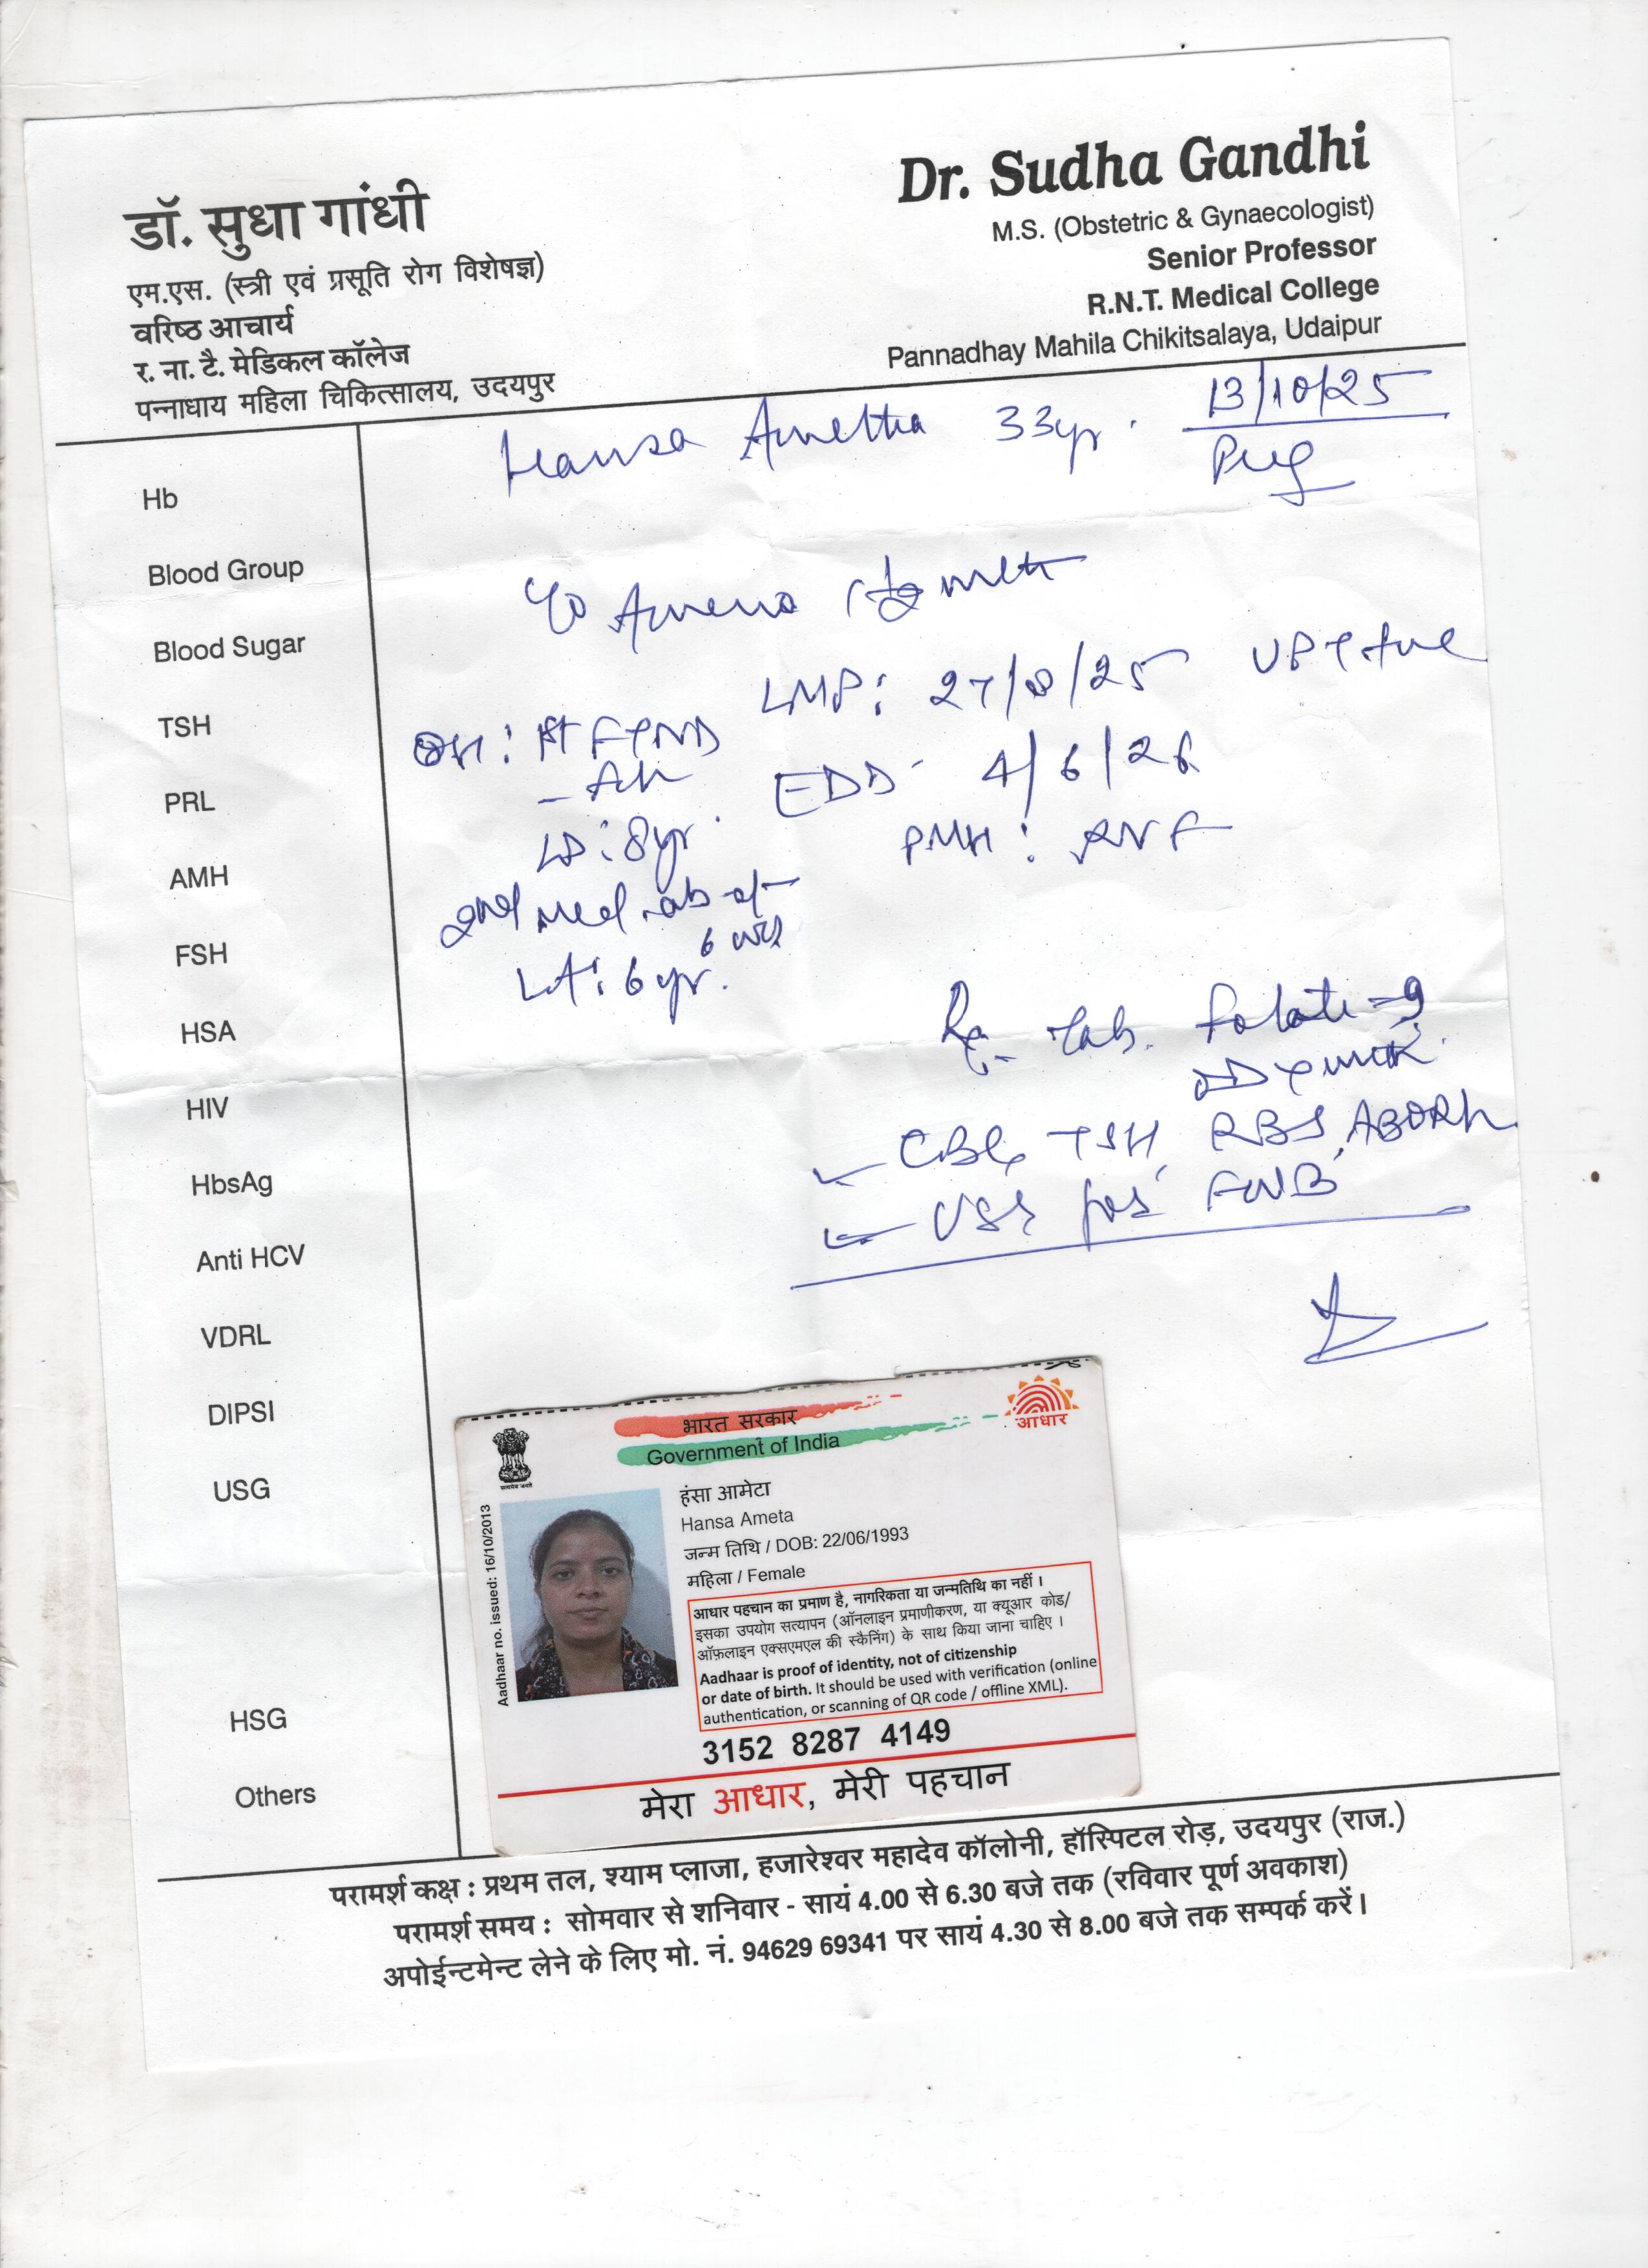 डॉ. सुधा गांधी
एम.एस. (स्त्री एवं प्रसूति रोग विशेषज्ञ)
वरिष्ठ आचार्य
र. ना. टै. मेडिकल कॉलेज
पन्नाधाय महिला चिकित्सालय, उदयपुर
Dr. Sudha Gandhi
M.S. (Obstetric & Gynaecologist)
Senior Professor
R.N.T. Medical College
Pannadhay Mahila Chikitsalaya, Udaipur
13/10/25
Hansa Ametha 33yr.
Hb
Blood Group
Blood Sugar
TSH
PRL
AMH
FSH
HSA
HIV
HbsAg
Anti HCV
VDRL
DIPSI
USG
HSG
Others
LMP: 27/8/25 UPT +ve
OH: 1st FTND
EDD 4/6/26
LD: 8yr.
PMH: RNF
2nd Med. ab at
6 wks
LA: 6yr.
Rx Tab. Folate-9
OD
CBC, TSH, RBS, ABORh
USG for FWB
भारत सरकार
Government of India
आधार
सत्यमेव जयते
Aadhaar no. issued: 16/10/2013
हंसा आमेटा
Hansa Ameta
जन्म तिथि / DOB: 22/06/1993
महिला / Female
आधार पहचान का प्रमाण है, नागरिकता या जन्मतिथि का नहीं ।
इसका उपयोग सत्यापन (ऑनलाइन प्रमाणीकरण, या क्यूआर कोड/
ऑफ़लाइन एक्सएमएल की स्कैनिंग) के साथ किया जाना चाहिए ।
Aadhaar is proof of identity, not of citizenship
or date of birth. It should be used with verification (online
authentication, or scanning of QR code / offline XML).
3152 8287 4149
मेरा आधार, मेरी पहचान
परामर्श कक्ष : प्रथम तल, श्याम प्लाजा, हजारेश्वर महादेव कॉलोनी, हॉस्पिटल रोड़, उदयपुर (राज.)
परामर्श समय : सोमवार से शनिवार - सायं 4.00 से 6.30 बजे तक (रविवार पूर्ण अवकाश)
अपोईन्टमेन्ट लेने के लिए मो. नं. 94629 69341 पर सायं 4.30 से 8.00 बजे तक सम्पर्क करें।